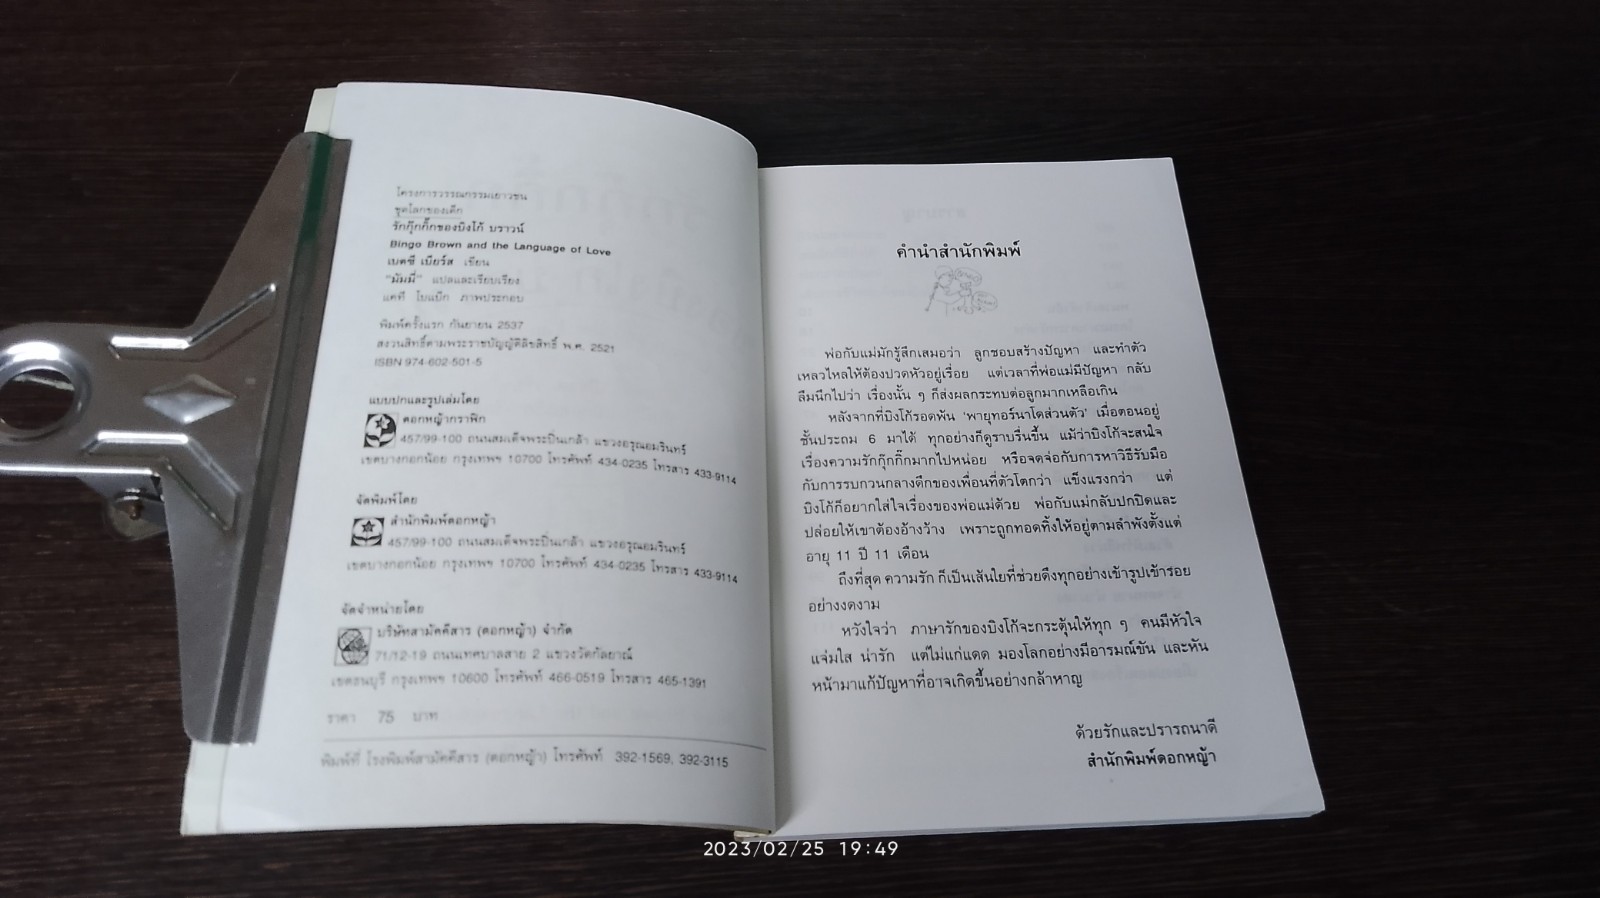 โครงการวรรณกรรมเยาวชน
ชุดโลกของเด็ก
รักกุ๊กกิ๊กของบิงโก้ บราวน์
Bingo Brown and the Language of Love
เบตซี เบียร์ส เขียน
"มัมมี่" แปลและเรียบเรียง
แคที โบแบ๊ก ภาพประกอบ
พิมพ์ครั้งแรก กันยายน 2537
สงวนสิทธิ์ตามพระราชบัญญัติลิขสิทธิ์ พ.ศ. 2521
ISBN 974-602-501-5
แบบปกและรูปเล่มโดย
ดอกหญ้ากราฟิก
457/99-100 ถนนสมเด็จพระปิ่นเกล้า แขวงอรุณอมรินทร์
เขตบางกอกน้อย กรุงเทพฯ 10700 โทรศัพท์ 434-0235 โทรสาร 433-9114
จัดพิมพ์โดย
สำนักพิมพ์ดอกหญ้า
457/99-100 ถนนสมเด็จพระปิ่นเกล้า แขวงอรุณอมรินทร์
เขตบางกอกน้อย กรุงเทพฯ 10700 โทรศัพท์ 434-0235 โทรสาร 433-9114
จัดจำหน่ายโดย
บริษัทสามัคคีสาร (ดอกหญ้า) จำกัด
71/12-19 ถนนเทศบาลสาย 2 แขวงวัดกัลยาณ์
เขตธนบุรี กรุงเทพฯ 10600 โทรศัพท์ 466-0519 โทรสาร 465-1391
ราคา 75 บาท
พิมพ์ที่ โรงพิมพ์สามัคคีสาร (ดอกหญ้า) โทรศัพท์ 392-1569, 392-3115
คำนำสำนักพิมพ์
พ่อกับแม่มักรู้สึกเสมอว่า ลูกชอบสร้างปัญหา และทำตัว
เหลวไหลให้ต้องปวดหัวอยู่เรื่อย แต่เวลาที่พ่อแม่มีปัญหา กลับ
ลืมนึกไปว่า เรื่องนั้น ๆ ก็ส่งผลกระทบต่อลูกมากเหลือเกิน
หลังจากที่บิงโก้รอดพ้น 'พายุทอร์นาโดส่วนตัว' เมื่อตอนอยู่
ชั้นประถม 6 มาได้ ทุกอย่างก็ดูราบรื่นขึ้น แม้ว่าบิงโก้จะสนใจ
เรื่องความรักกุ๊กกิ๊กมากไปหน่อย หรือจดจ่อกับการหาวิธีรับมือ
กับการรบกวนกลางดึกของเพื่อนที่ตัวโตกว่า แข็งแรงกว่า แต่
บิงโก้ก็อยากใส่ใจเรื่องของพ่อแม่ด้วย พ่อกับแม่กลับปกปิดและ
ปล่อยให้เขาต้องอ้างว้าง เพราะถูกทอดทิ้งให้อยู่ตามลำพังตั้งแต่
อายุ 11 ปี 11 เดือน
ถึงที่สุด ความรัก ก็เป็นเส้นใยที่ช่วยดึงทุกอย่างเข้ารูปเข้ารอย
อย่างงดงาม
หวังใจว่า ภาษารักของบิงโก้จะกระตุ้นให้ทุก ๆ คนมีหัวใจ
แจ่มใส น่ารัก แต่ไม่แก่แดด มองโลกอย่างมีอารมณ์ขัน และหัน
หน้ามาแก้ปัญหาที่อาจเกิดขึ้นอย่างกล้าหาญ
ด้วยรักและปรารถนาดี
สำนักพิมพ์ดอกหญ้า
2023/02/25 19:49